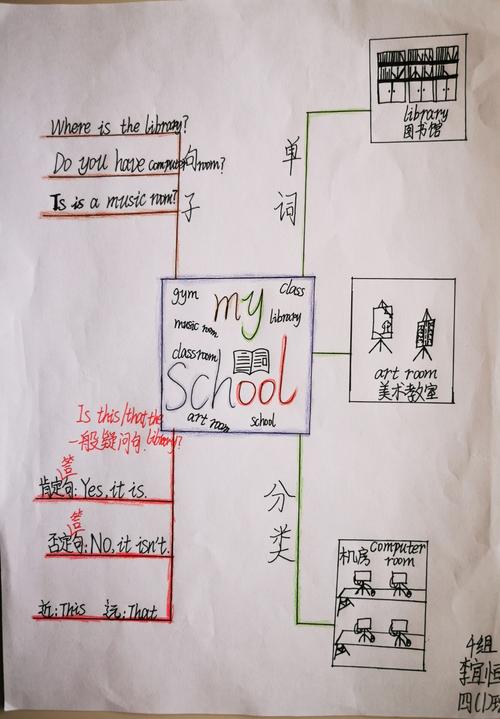 Where is the library?
Do you have computer room?
Is is a music room?
句子
单词
library
图书馆
gym
my
class
music room
library
classroom
School
art room
school
art room
美术教室
Is this/that the
一般疑问句. library?
答
肯定句: Yes, it is.
答
否定句: NO, it isn't.
近: This 远: That
分类
机房 Computer
room
4组
李宜恒
四(1)